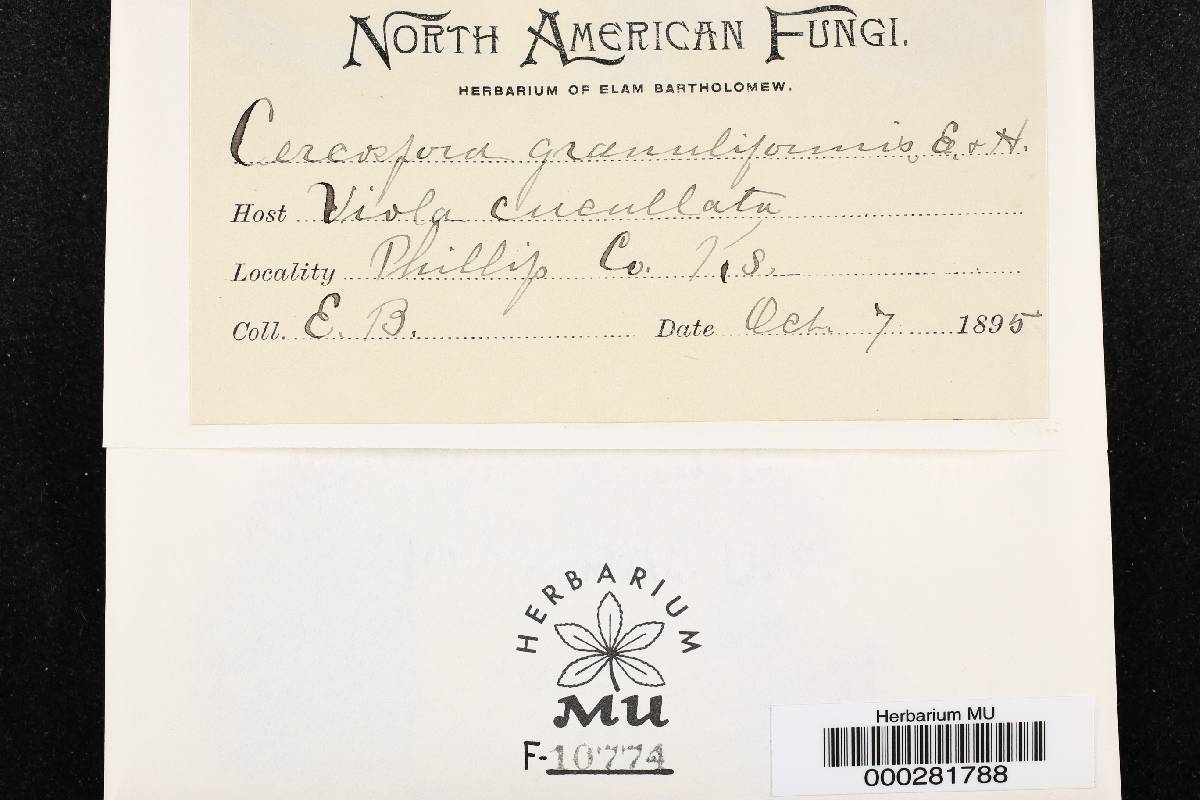 NORTH AMERICAN FUNGI.
HERBARIUM OF ELAM BARTHOLOMEW.
Cercospora granuliformis, E. & H.
Host Viola cucullata
Locality Phillips Co. Ks.
Coll. E. B. Date Oct. 7 1895
HERBARIUM
MU
F-10774
Herbarium MU
000281788